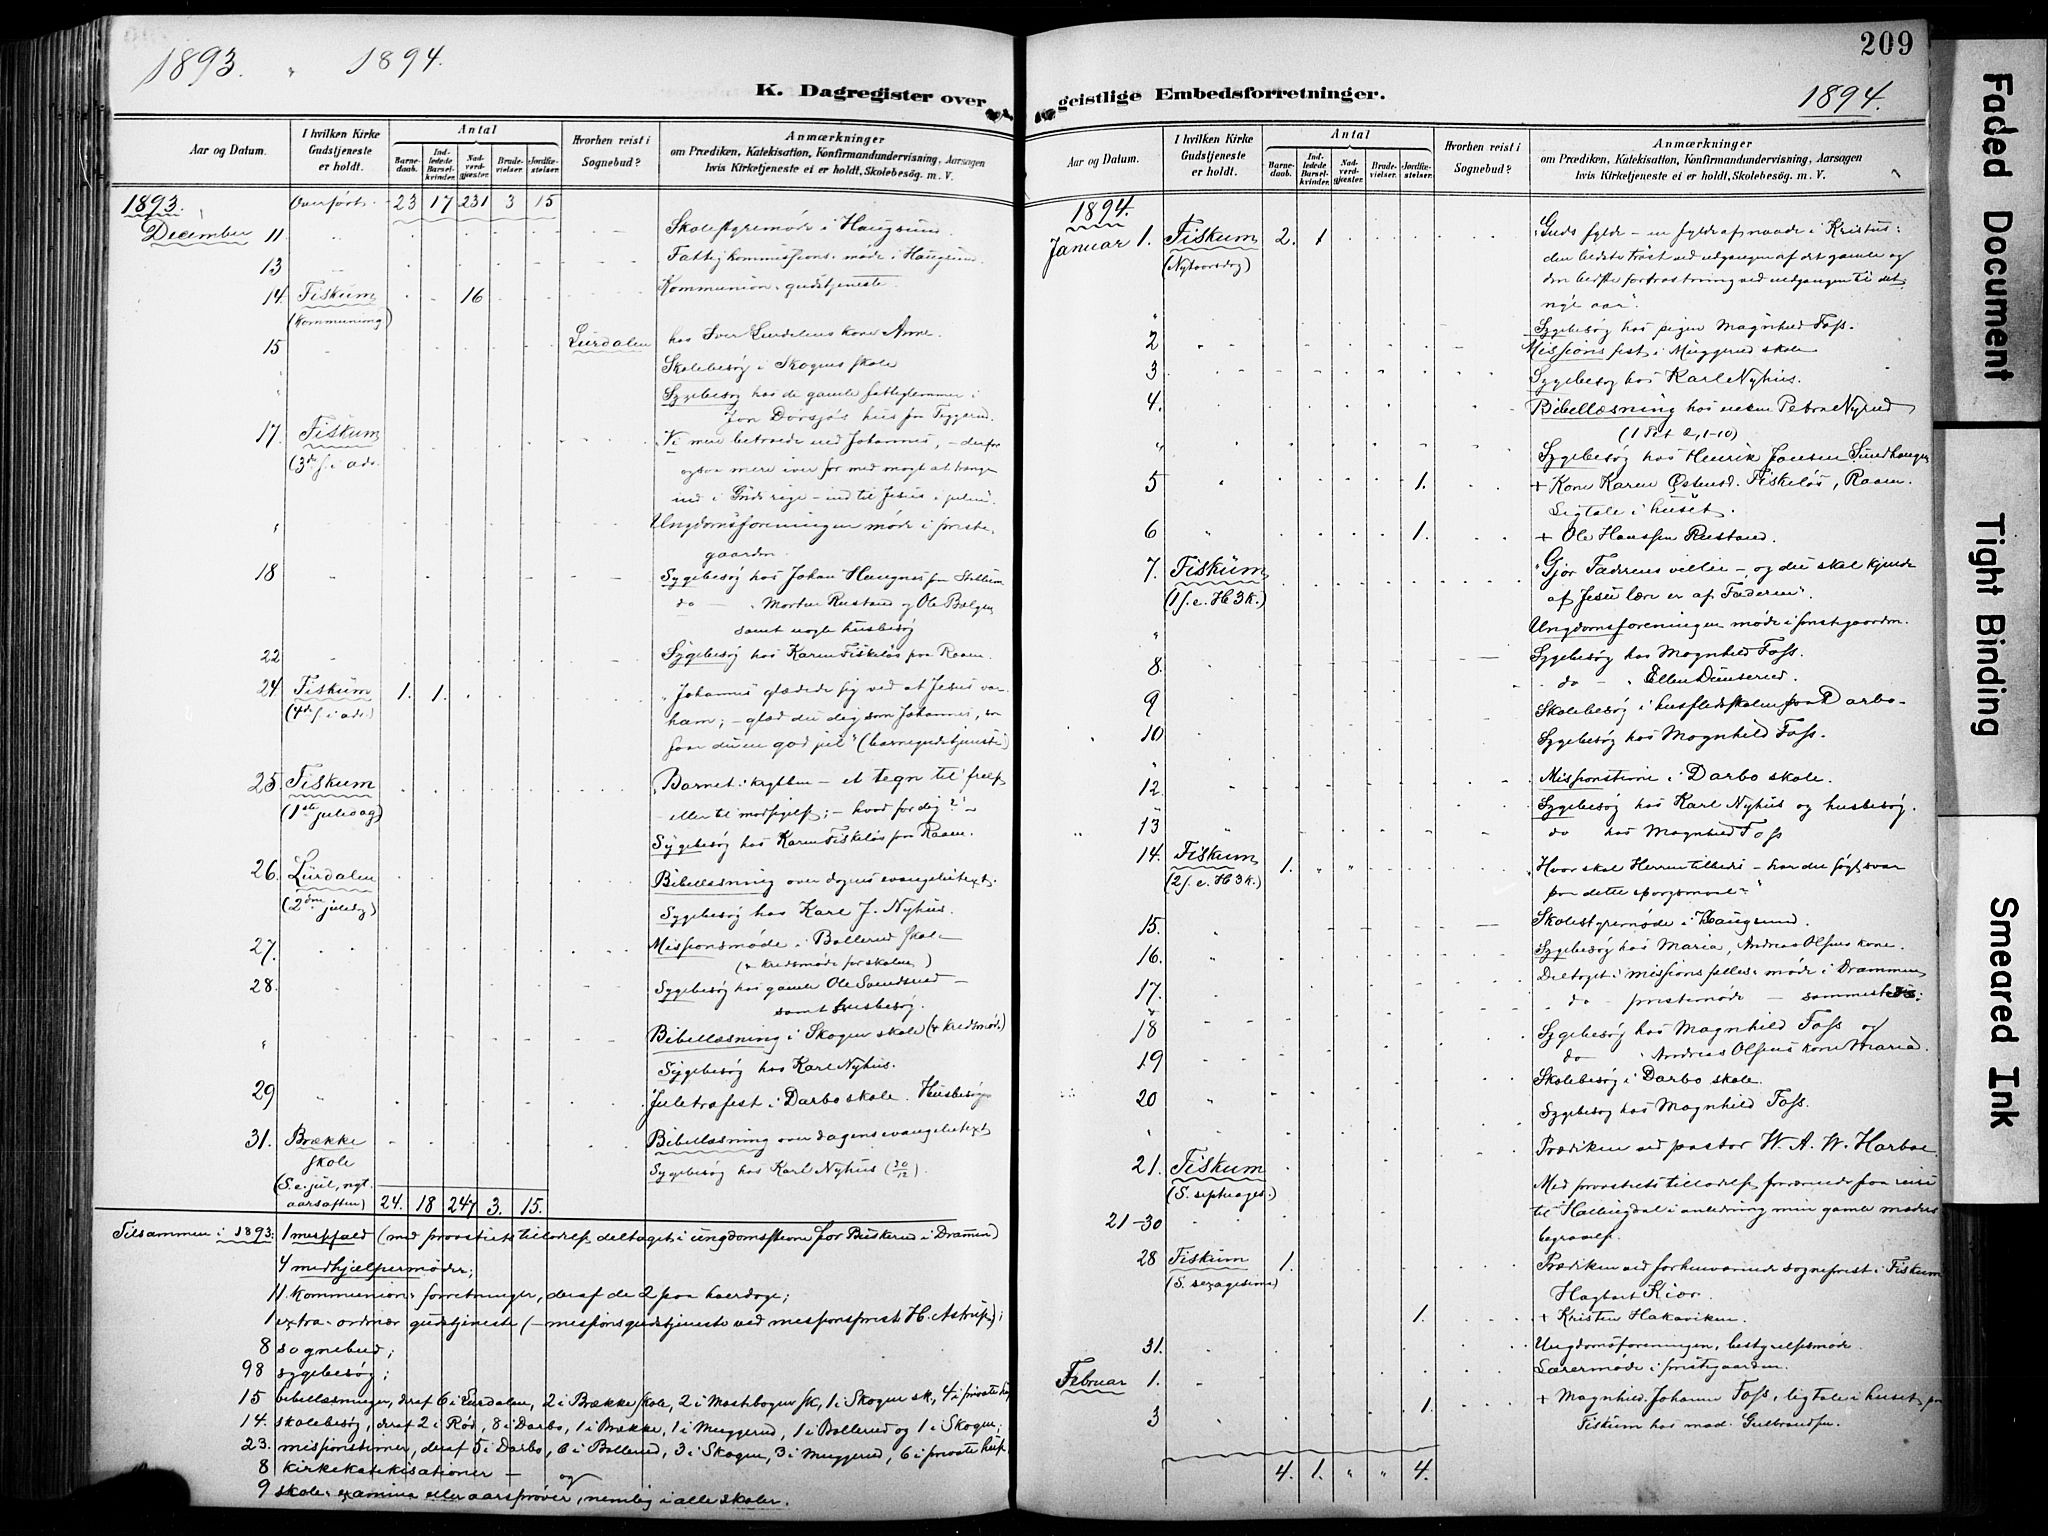 1893. " 1894.
K. Dagregister over
Aar og Datum.
I hvilken Kirke Gudstjeneste er holdt.
Antal
Barnedaab.
Indledede Barselkvinder.
Nadverdgjæster.
Brudevielser.
Jordfæstelser.
Hvorhen reist i Sognebud?
Anmærkninger
om Prædiken, Katekisation, Konfirmandundervisning, Aarsagen
hvis Kirketjeneste ei er holdt, Skolebesøg. m. V.
1893. Overført. 23 17 231 3 15
December 11 Skolestyremøde i Haugsund.
13 Fattigkommissions-møde i Haugsund.
14. Fiskum 16 Kommunion-gudstjeneste
(kommunion)
15 Lurdalen hos Iver Lurdalens kone Anne.
Skolebesøg i Skogens skole
Sygebesøg hos de gamle fattiglemmer i
Jon Dorsjøs hus
17. Fiskum Vi mere betroede end Johannes, - derfor
(3die s. i adv. ogsaa mere iver for med magt at trænge
ind i Guds rige - ind til Jesus i julen".
" Ungdomsforeningens møde i preste-
gaarden.
18 Sygebesøg hos Johan Haugnes fra
do - " Morten Rustand og Ole Bolgen
samt nogle husbesøg
22 Sygebesøg hos Karen Fiskeløs paa Raaen.
24 Fiskum 1. 1. "Johannes glædede sig ved at Jesus var
(4de s. i adv.) ham; - glæd du dig som Johannes, saa
faar du en god jul" (barnegudstjeneste)
25 Fiskum "Barnet i krybben - et tegn til frelse
(1ste juledag) - eller til modsigelse; - hvad for dig?"
Sygebesøg hos Karen Fiskeløs paa Raaen.
26. Lurdalen Bibellæsning over dagens evangelietext.
(2den juledag) Sygebesøg hos Karl J. Nyhus.
27. Missionsmøde i Bollerud skole
(& kredsmøde for skolen)
28. Sygebesøg hos gamle Ole Sundsrud -
samt husbesøg.
" Bibellæsning i Skogen skole (& kredsmøde)
Sygebesøg hos Karl Nyhus.
29 " Juletræfest i Darbo skole. Husbesøg
31. Brække Bibellæsning over dagens evangelietext
skole Sygebesøg hos Karl Nyhus (30/12).
(S. e. jul, nyt-
aarsaften) 24. 18 247 3. 15.
Tilsammen i 1893: 1 messfald (med provstiets tilladelse deltaget i ungdomsstevne for Buskerud i Drammen)
4 medhjælpermøder;
11. kommunion-forretninger, deraf de 2 paa hverdage;
1 extra-ordinær gudstjeneste (- missionsgudstjeneste ved missionsprest H. Astrup);
8 sognebud;
98 sygebesøg;
15 bibellæsninger, deraf 6 i Lurdalen, 2 i Brække skole, 2 i Mastbogen sk, 1 i Skogen sk, 4 i private hus
14. skolebesøg, deraf 2 i Rød, 8 i Darbo, 1 i Brække, 1 i Muggerud, 1 i Bollerud og 1 i Skogen;
23. missionstimer, deraf 5 i Darbo, 6 i Bollerud, 3 i Skogen, 3 i Muggerud, 6 i private huse
8 kirkekatekisationer - og
9 skole-examina eller aarsprøver, nemlig i alle skoler.
209
geistlige Embedsforretninger.
1894.
Aar og Datum.
I hvilken Kirke Gudstjeneste er holdt.
Antal
Barnedaab.
Indledede Barselkvinder.
Nadverdgjæster.
Brudevielser.
Jordfæstelser.
Hvorhen reist i Sognebud?
Anmærkninger
om Prædiken, Katekisation, Konfirmandundervisning, Aarsagen
hvis Kirketjeneste ei er holdt, Skolebesøg. m. V.
1894.
Januar 1. Fiskum 2. 1 "Guds fylde - en fylde af naade i Kristus:
(Nytaarsdag) den bedste trøst ved udgangen af det gamle og
den bedste fortrøstning ved indgangen til det
nye aar".
" Sygebesøg hos pigen Magnhild Foss.
2 Missionsfest i Muggerud skole
3 Sygebesøg hos Karl Nyhus.
4. Bibellæsning hos enken Petra Nyrud
(1 Pet 2, 1-10)
" Sygebesøg hos Henrik Jansen Sundhaugen
5 1. + Kone Karen Østensd. Fiskeløs, Raaen.
Ligtale i huset.
6 1. + Ole Hanssen Rustand.
7. Fiskum "Gjør Faderens vilje - og du skal kjende
(1 s. e. H 3 K.) af Jesu lære er af Faderen".
" Ungdomsforeningens møde i prestegaarden.
8. Sygebesøg hos Magnhild Foss.
do - " Ellen Dunserud.
9 Skolebesøg i husflidsskolen paa Darbo-
10 Sygebesøg hos Magnhild Foss.
" Missionstime i Darbo skole.
12. Sygebesøg hos Karl Nyhus og husbesøg.
13 do hos Magnhild Foss
14. Fiskum 1. "Hvor skal Herren tilbedes - har du søgt svar
(2 s. e. H 3 K.) paa dette spørgsmaal?"
15. Skolestyremøde i Haugsund.
16. Sygebesøg hos Maria, Andreas Olsens kone.
17. Deltaget i missions fælles-møde i Drammen
& do - prestemøde - sammesteds.
18 Sygebesøg hos Magnhild Foss og
do " Andreas Olsens kone Maria.
19 Skolebesøg i Darbo skole.
20 Sygebesøg hos Magnhild Foss.
21. Fiskum Prædiken ved pastor W. A. W. Harboe
(S. septuages.) Med provstiets tilladelse fraværende paa reise
21-30 til Hallingdal i anledning min gamle moders
begravelse.
28 Fiskum 1. Prædiken ved forhenværende sogneprest i Fiskum
(S. sexagesima) Hagbart Kiær.
1. + Kristen Hakavikens.
31. Ungdomsforeningens bestyrelsesmøde.
Februar 1. Lærermøde i prestegaarden.
3 1. + Magnhild Johanne Foss, ligtale i huset paa
Fiskum hos mad. Gulbrandsen.
4. 1. " " 4.
Faded Document
Tight Binding
Smeared Ink